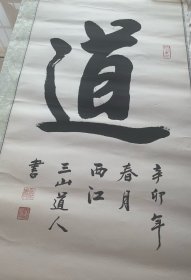 道
辛卯年
春月
西江
三山道人
書